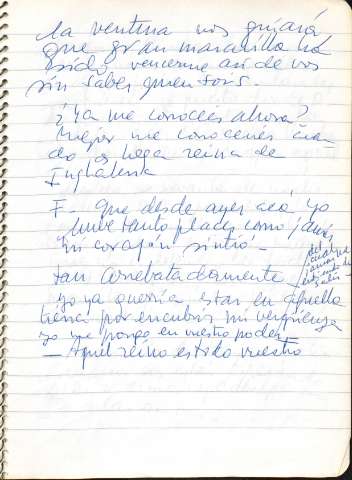 la ventura nos guiará
que gran maravilla ha
sido vencerme así de vos
sin saber quien sois.
¿Ya me conoceis ahora?
Mejor me conocereis cuan
do os haga reina de
Inglaterra
F- Que desde ayer acá yo
tuve tanto placer como jamás
mi corazón sintió -
tan arrebatadamente
yo ya querría estar en aquella
tierra por encubrir mi vergüenza
yo me pongo en vuestro poder
- Aquel reino es todo vuestro
del
cual